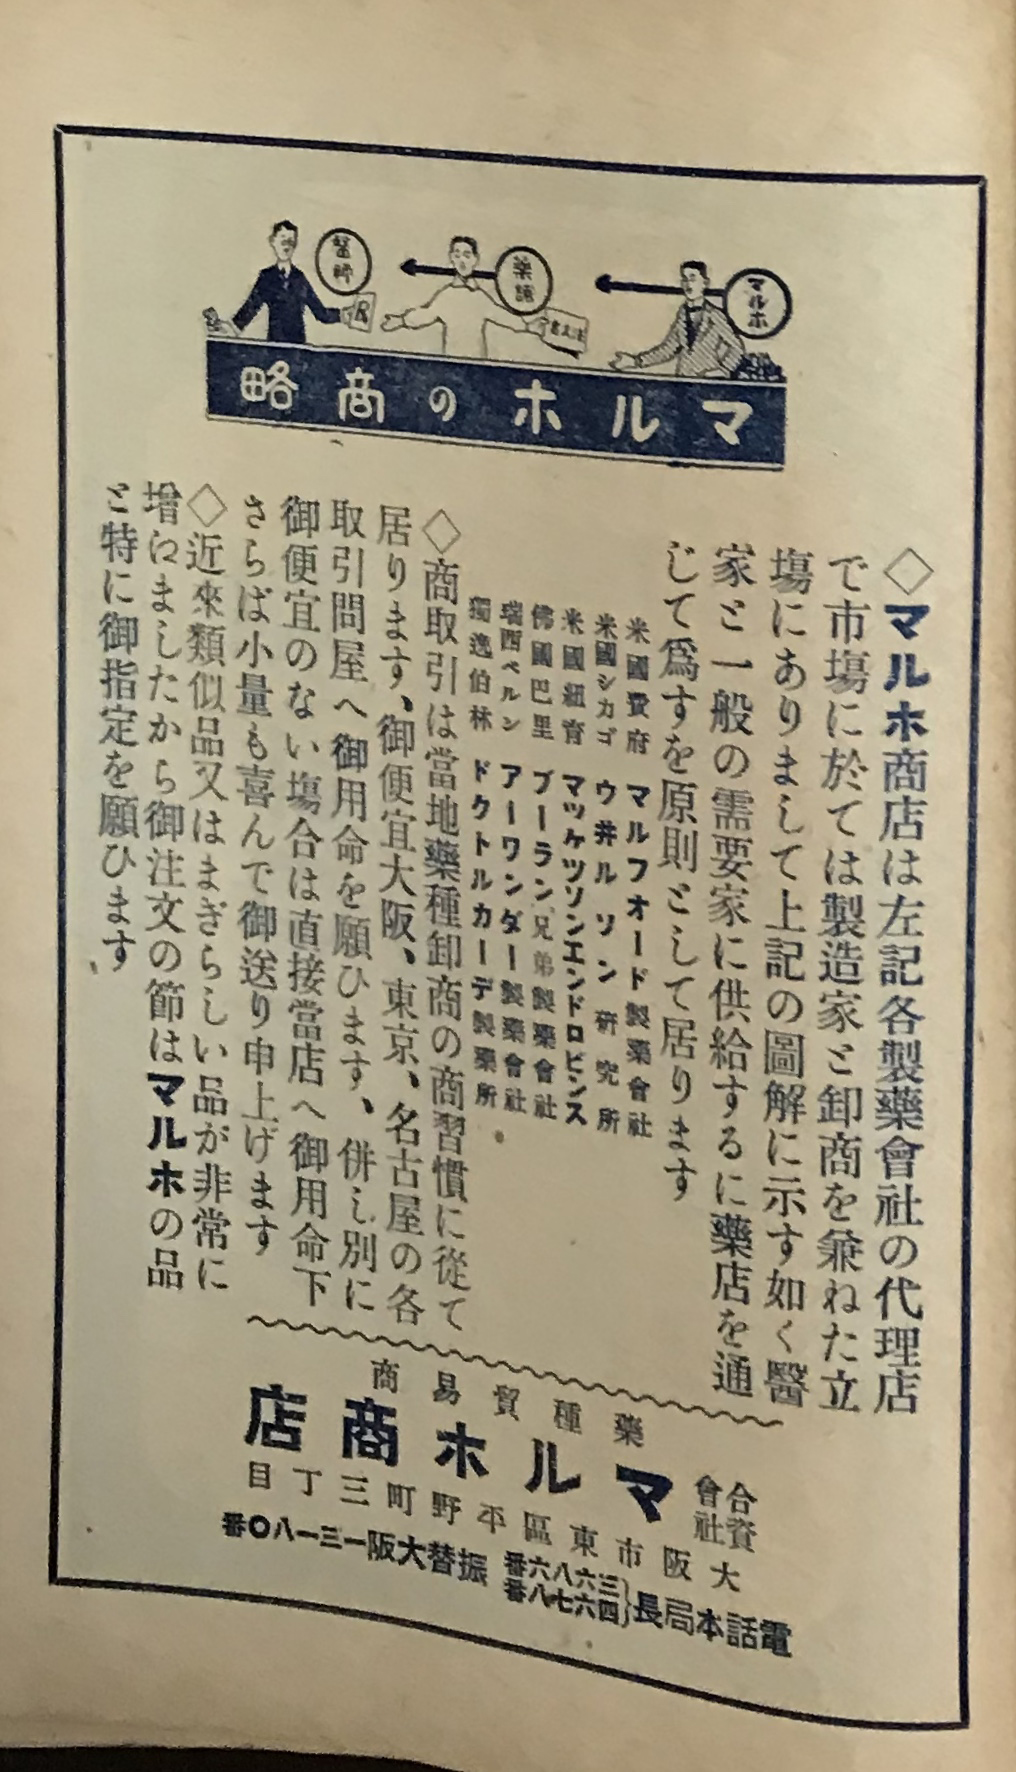 マルホ
藥舗
醫師
マルホの商略
◇マルホ商店は左記各製藥會社の代理店
で市場に於ては製造家と卸商を兼ねた立
場にありまして上記の圖解に示す如く醫
家と一般の需要家に供給するに藥店を通
じて爲すを原則として居ります
米國費府 マルフオード製藥會社
米國シカゴ ウ井ルソン研究所
米國紐育 マツケツソンエンドロビンス
佛國巴里 ブーラン兄弟製藥會社
瑞西ベルン アーワンダー製藥會社
獨逸伯林 ドクトルカーデ製藥所
◇商取引は當地藥種卸商の商習慣に從て
居ります、御便宜大阪、東京、名古屋の各
取引問屋へ御用命を願ひます、併し別に
御便宜のない場合は直接當店へ御用命下
さらば小量も喜んで御送り申上げます
◇近來類似品又はまぎらしい品が非常に
增ねましたから御注文の節はマルホの品
と特に御指定を願ひます
藥種貿易商
合資會社 マルホ商店
大阪市東區平野町三丁目
電話本局長{三六八六番 四六七八番 振替大阪一三一八〇番